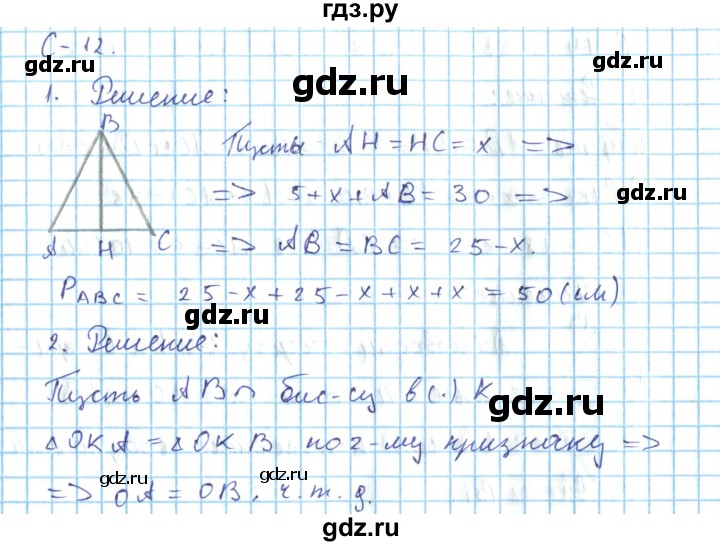 гдз.ру
С-12.
gdz.ru
gdz.ru
gdz.ru
1. Решение:
B
Пусты AH = HC = x =>
=> 5+x+AB = 30 =>
gdz.ru
A H C => AB = BC = 25-x.
gdz.ru
P ABC = 25-x+25-x+x+x = 50(см)
gdz.ru
gdz.ru
2. Решение:
Пусть AB ∩ бис-су в (.) K
gdz.ru
△OKA = △OKB по 2-му признаку =>
gdz.ru
gdz.ru
=> OA = OB, ч.т.д.
gdz.ru